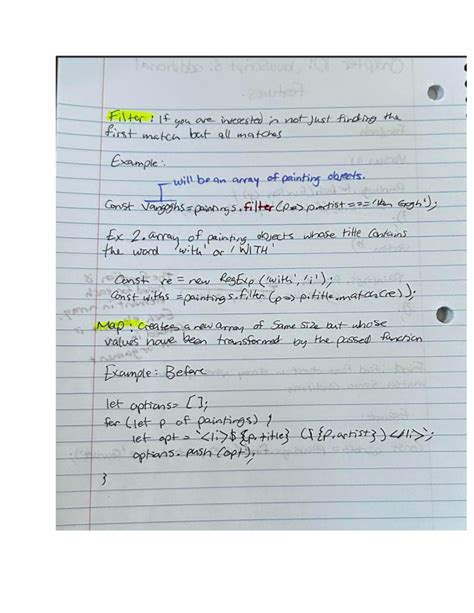 Filter: If you are interested in not just finding the
first match but all matches
Example:
will be an array of painting objects.
Const Vangoghs = paintings.filter(p=> p.artist === 'Van Gogh');
Ex 2. array of painting objects whose title contains
the word 'with' or 'WITH'
Const re = new RegExp('with','i');
Const withs = paintings.filter(p=> p.title.match(re));
Map: creates a new array of same size but whose
values have been transformed by the passed function
Example: Before
let options = [];
for (let p of paintings) {
let opt = `<li>${p.title} (${p.artist})</li>`;
options.push(opt);
}